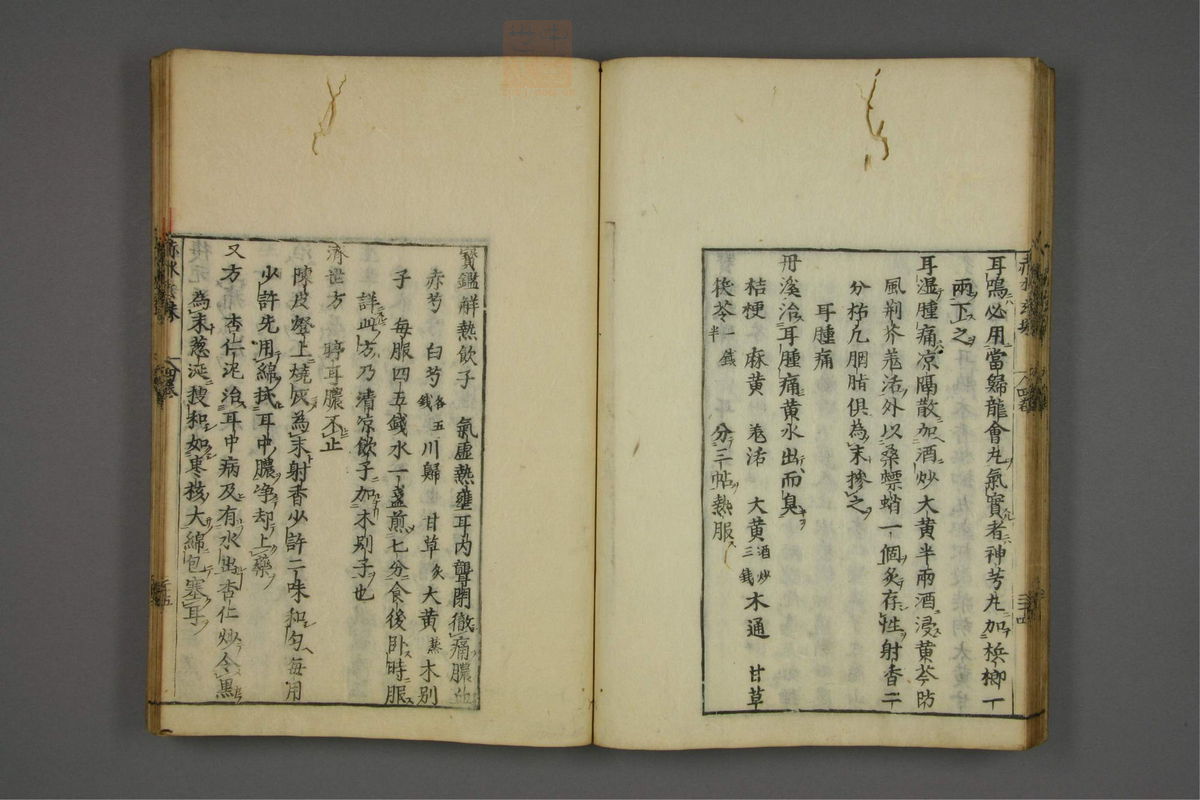 耳鳴必用當歸龍會丸氣實者神芎丸加梹榔一
兩下之
耳湿腫痛凉隔散加酒炒大黄半兩酒浸黄芩防
風荆芥羗活外以桑螵蛸一個炙存性射香二
分枯凡胭脂俱為末摻之
耳腫痛
丹溪治耳腫痛黄水出而臭
桔梗 麻黄 羗活 大黄酒炒三錢木通 甘草
茯苓一錢半 分三帖熱服
寳鑑解熱飲子 氣虚熱壅耳内聾閉徹痛膿血
赤芍 白芍各五錢川歸 甘草炙大黄蒸木别
子 每服四五錢水一盞煎七分食後卧時服
詳此方乃清凉飲子加木别子也
濟世方 聤耳膿不止
陳皮燈上燒灰為末射香少許二味和匀每用
少許先用綿拭耳中膿净却上藥
又方 杏仁泥治耳中病及有水出杏仁炒令黒
為末葱涎搜和如棗核大綿包塞耳